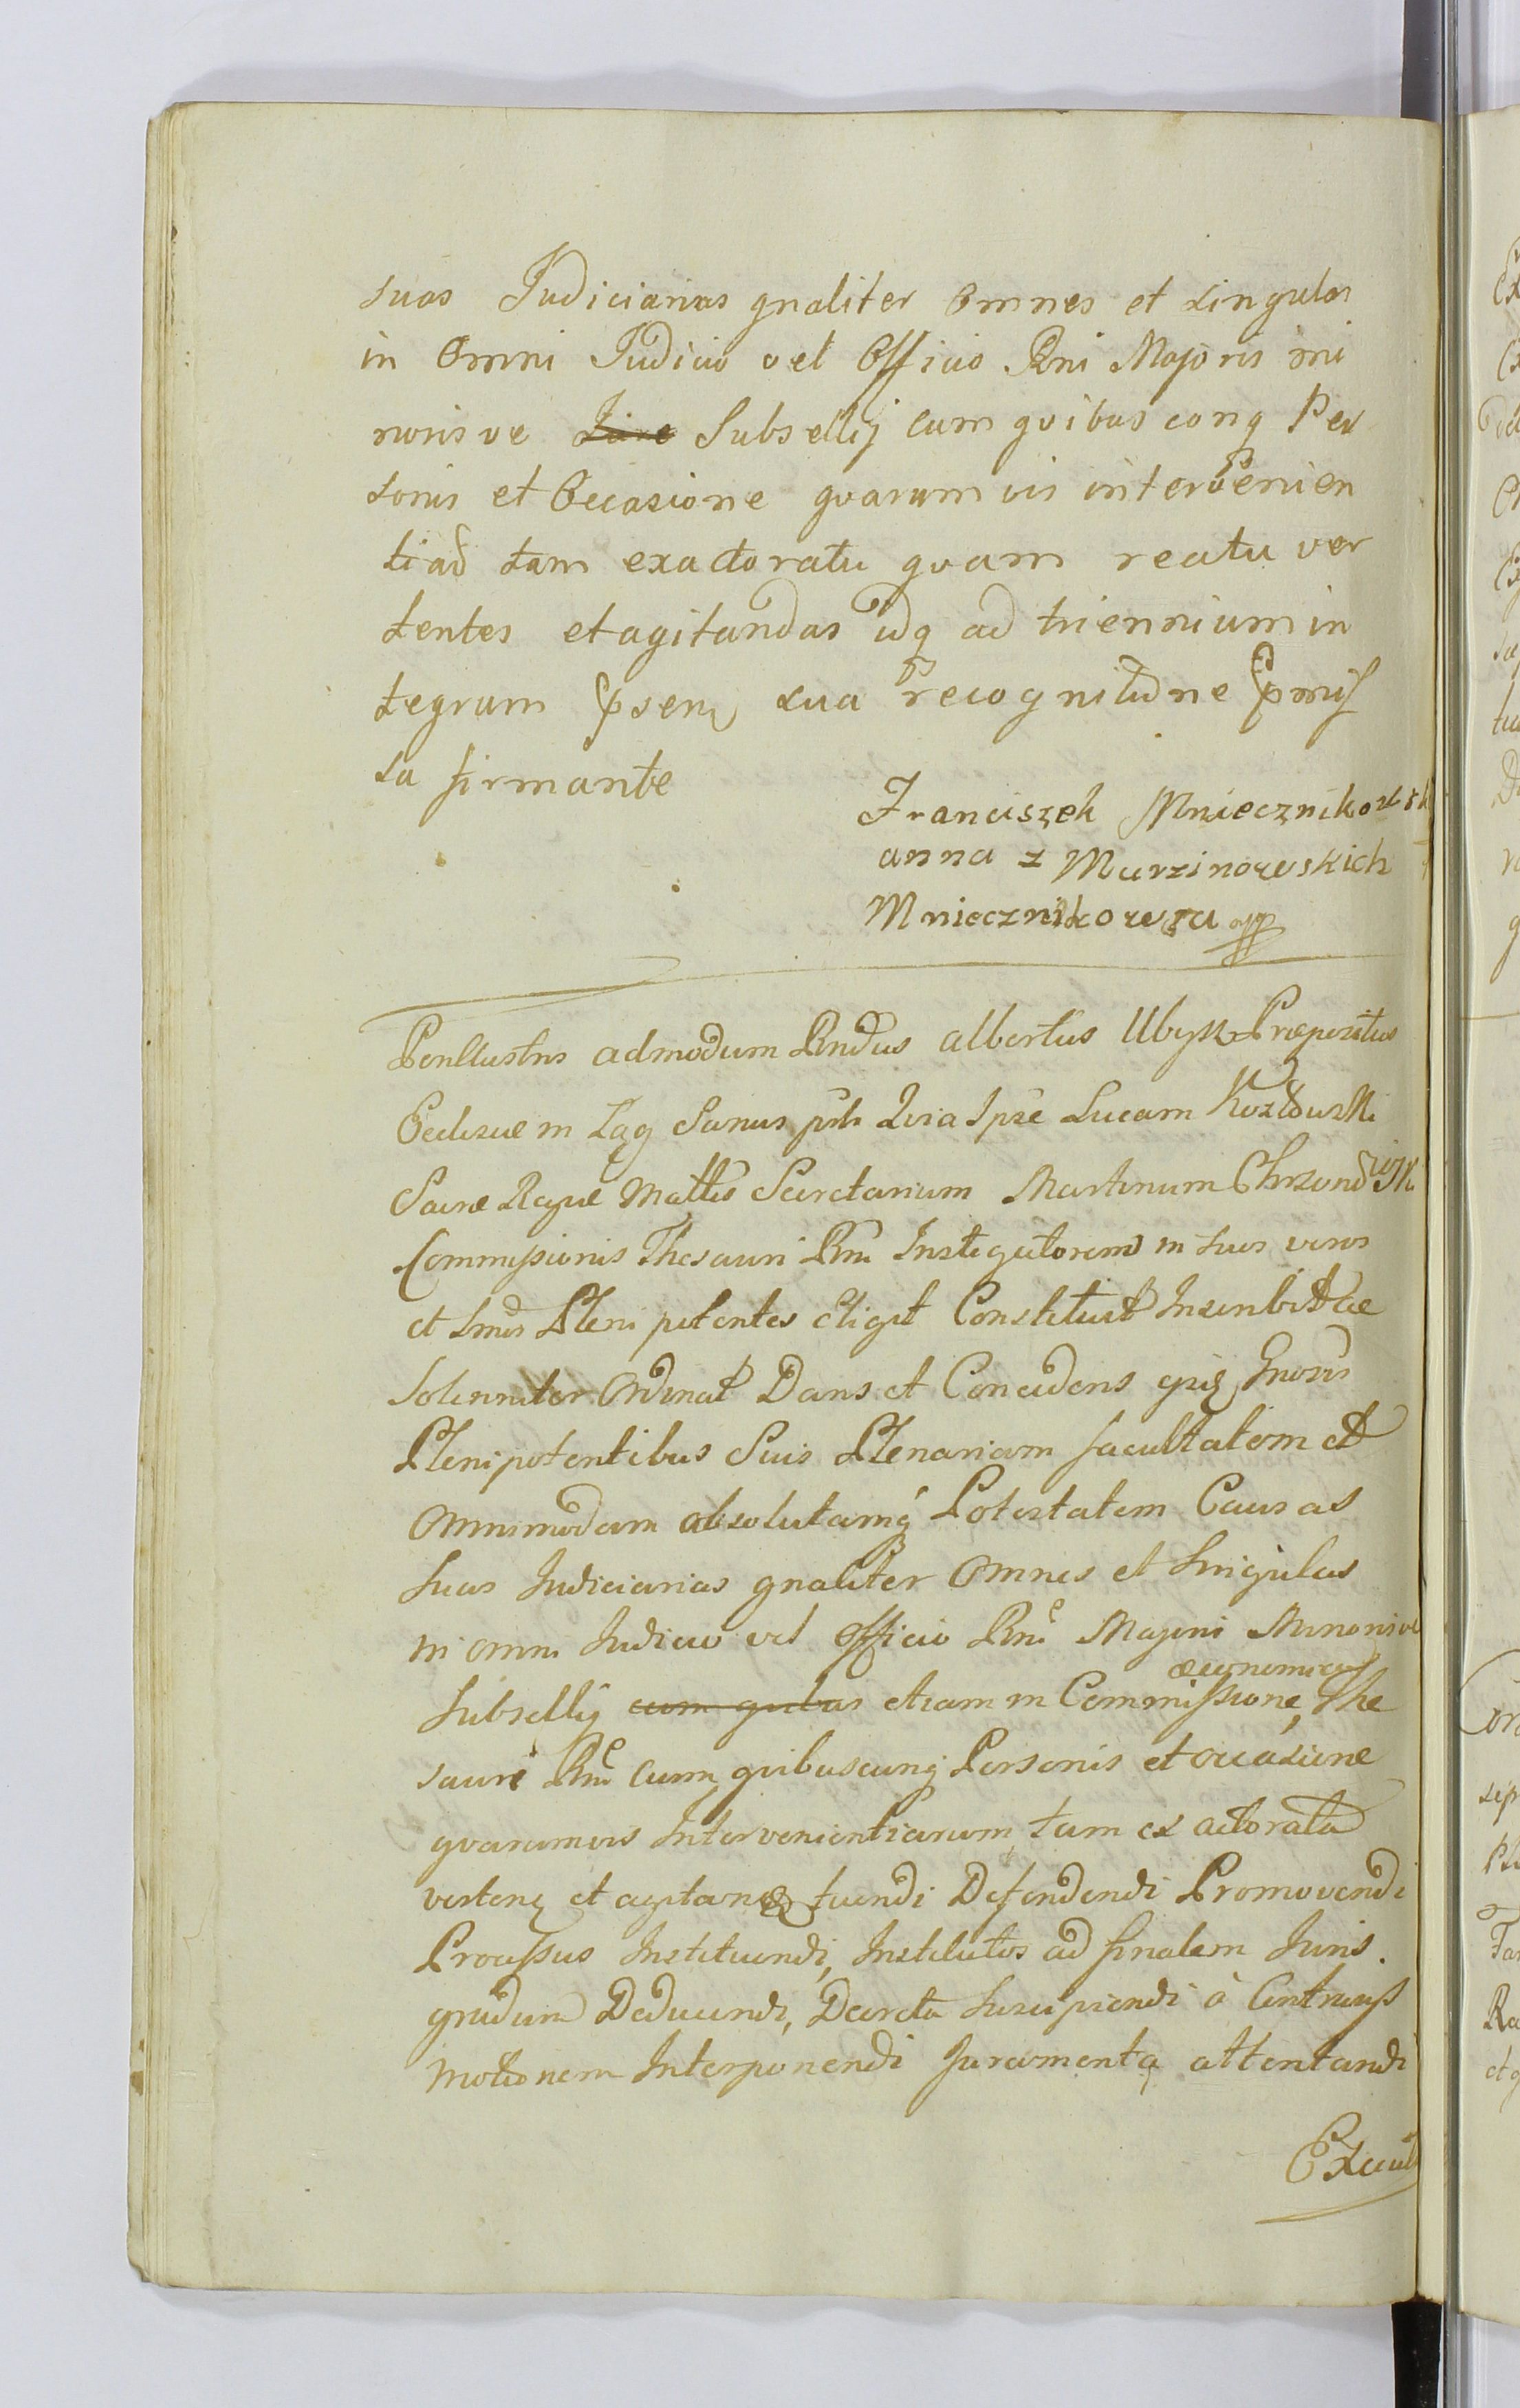 suas Judiciarias gnaliter Omnes et singulas
in Omni Judicio vel Officio Rni Majoris mi
norisve Jure Subsellij cum quibus conq Per
sonis et Occasione quarum vis intervenien
tiaδ tam exactoratu quam reatu ver
tentes et agitandas idq ad triennium in
tegrum psenɜ sua recognitione pmiſ
sa firmante
Franciszek Mniecznikowsk
anna z Murzinowskich
Mniecznikowska mpp
Perillustris admodum Rndus albertus Ubysz Præpositus
Eccleiæ in Łąg Sanus Qvia Ipse Lucam Kozłowski
Sacræ Regiæ Mattis Secretarium Martinum Chrzonδ
Commissionis Thesauri Rni Instigatorem in suos veros
et Plenipotentes eligit Constituit Inscribit ac
Solenniter Ordinat Dans et Concedens Gnosis
Plenipotentibus Suis Plenariam facultatem et
Omnimodam absolutamq Potestatem Causas
Suas Judiciarias gnaliter Omnes et Singulas
in omni Judicio vel Officio Rni Majoris Minorisve
Subsellij cum quibus etiam in Commissione œconomica The
sauri Rni Cum quibuscunq Personis et occasione
quarumvis Intervenientiarum, tam ex actoratu
vertenɜ et agitanɜ tuendi Defendendi Promovendi
Processus Instituendi, Institutos ad finalem Juris
gradum Deducendi, Decreta Suscipiendi à
motionem Interponendi Juramenta attentandi